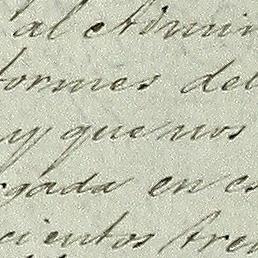 al Admin
formes del
uy que nos
rgada en es
cientos tre